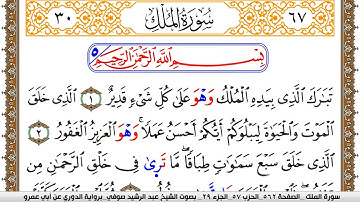 ٣٠ سُورَةُ المُلْكِ ٦٧
بِسْمِ اللَّهِ الرَّحْمَٰنِ الرَّحِيمِ ٥
تَبَارَكَ الَّذِي بِيَدِهِ الْمُلْكُ وَهْوَ عَلَىٰ كُلِّ شَيْءٍ قَدِيرٌ ١ الَّذِي خَلَقَ
الْمَوْتَ وَالْحَيَوٰةَ لِيَبْلُوَكُمْ أَيُّكُمْ أَحْسَنُ عَمَلًا وَهْوَ الْعَزِيزُ الْغَفُورُ ٢
الَّذِي خَلَقَ سَبْعَ سَمَٰوَٰتٍ طِبَاقًا مَّا تَرَىٰ فِي خَلْقِ الرَّحْمَٰنِ مِن
سورة الملك _ الصفحة ٥٦٢ _ الحزب ٥٧ _ الجزء ٢٩ _ بصوت الشيخ عبد الرشيد صوفي _ برواية الدوري عن أبي عمرو